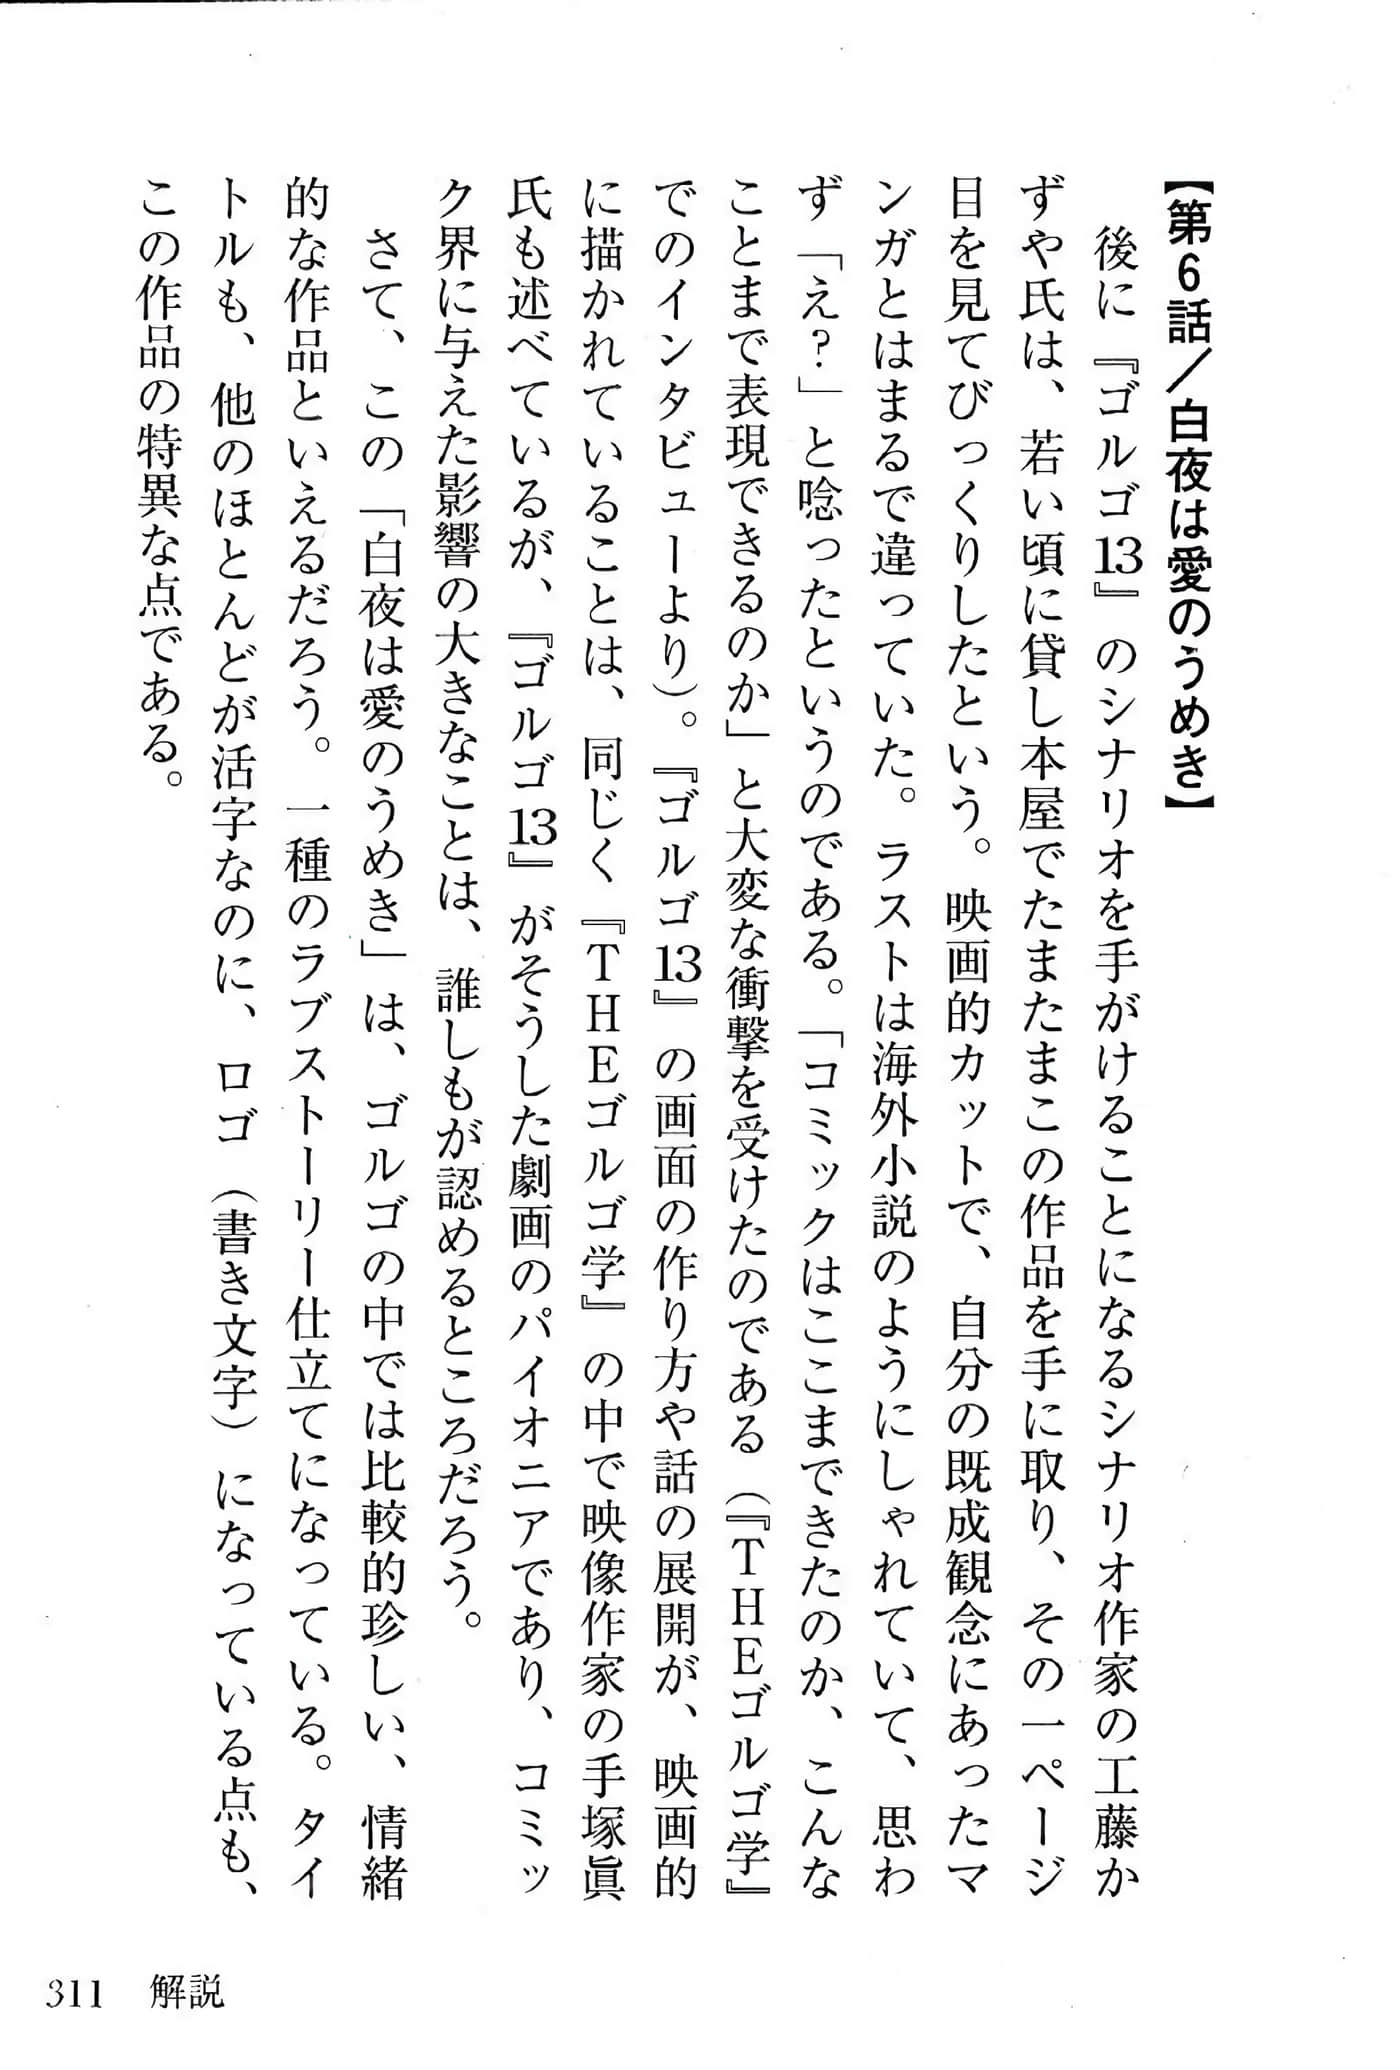 【第6話／白夜は愛のうめき】
後に『ゴルゴ13』のシナリオを手がけることになるシナリオ作家の工藤か
ずや氏は、若い頃に貸し本屋でたまたまこの作品を手に取り、その一ページ
目を見てびっくりしたという。映画的カットで、自分の既成観念にあったマ
ンガとはまるで違っていた。ラストは海外小説のようにしゃれていて、思わ
ず「え？」と唸ったというのである。「コミックはここまできたのか、こんな
ことまで表現できるのか」と大変な衝撃を受けたのである（『THEゴルゴ学』
でのインタビューより）。『ゴルゴ13』の画面の作り方や話の展開が、映画的
に描かれていることは、同じく『THEゴルゴ学』の中で映像作家の手塚眞
氏も述べているが、『ゴルゴ13』がそうした劇画のパイオニアであり、コミッ
ク界に与えた影響の大きなことは、誰しもが認めるところだろう。
さて、この「白夜は愛のうめき」は、ゴルゴの中では比較的珍しい、情緒
的な作品といえるだろう。一種のラブストーリー仕立てになっている。タイ
トルも、他のほとんどが活字なのに、ロゴ（書き文字）になっている点も、
この作品の特異な点である。
311 解説